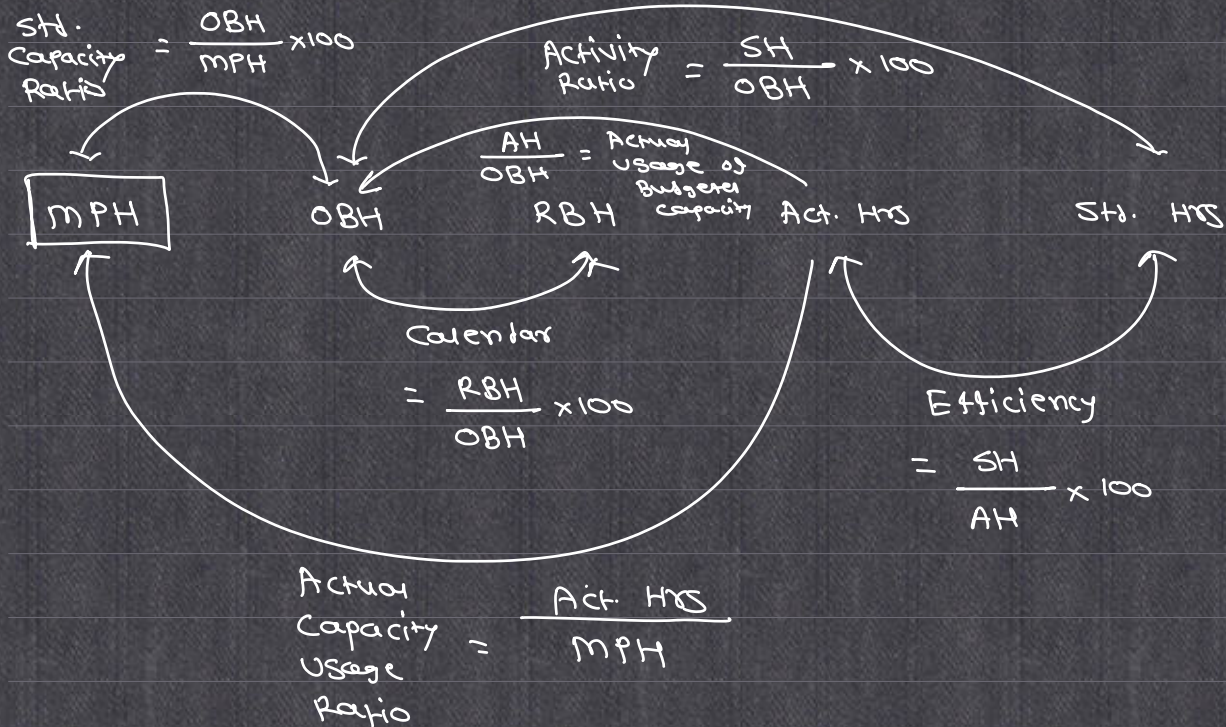 Std. Capacity Ratio = OBH / MPH × 100
Activity Ratio = SH / OBH × 100
AH / OBH = Actual Usage of Budgeted Capacity
MPH OBH RBH Act. Hrs Std. Hrs
Calendar
= RBH / OBH × 100
Efficiency
= SH / AH × 100
Actual Capacity Usage Ratio = Act. Hrs / MPH